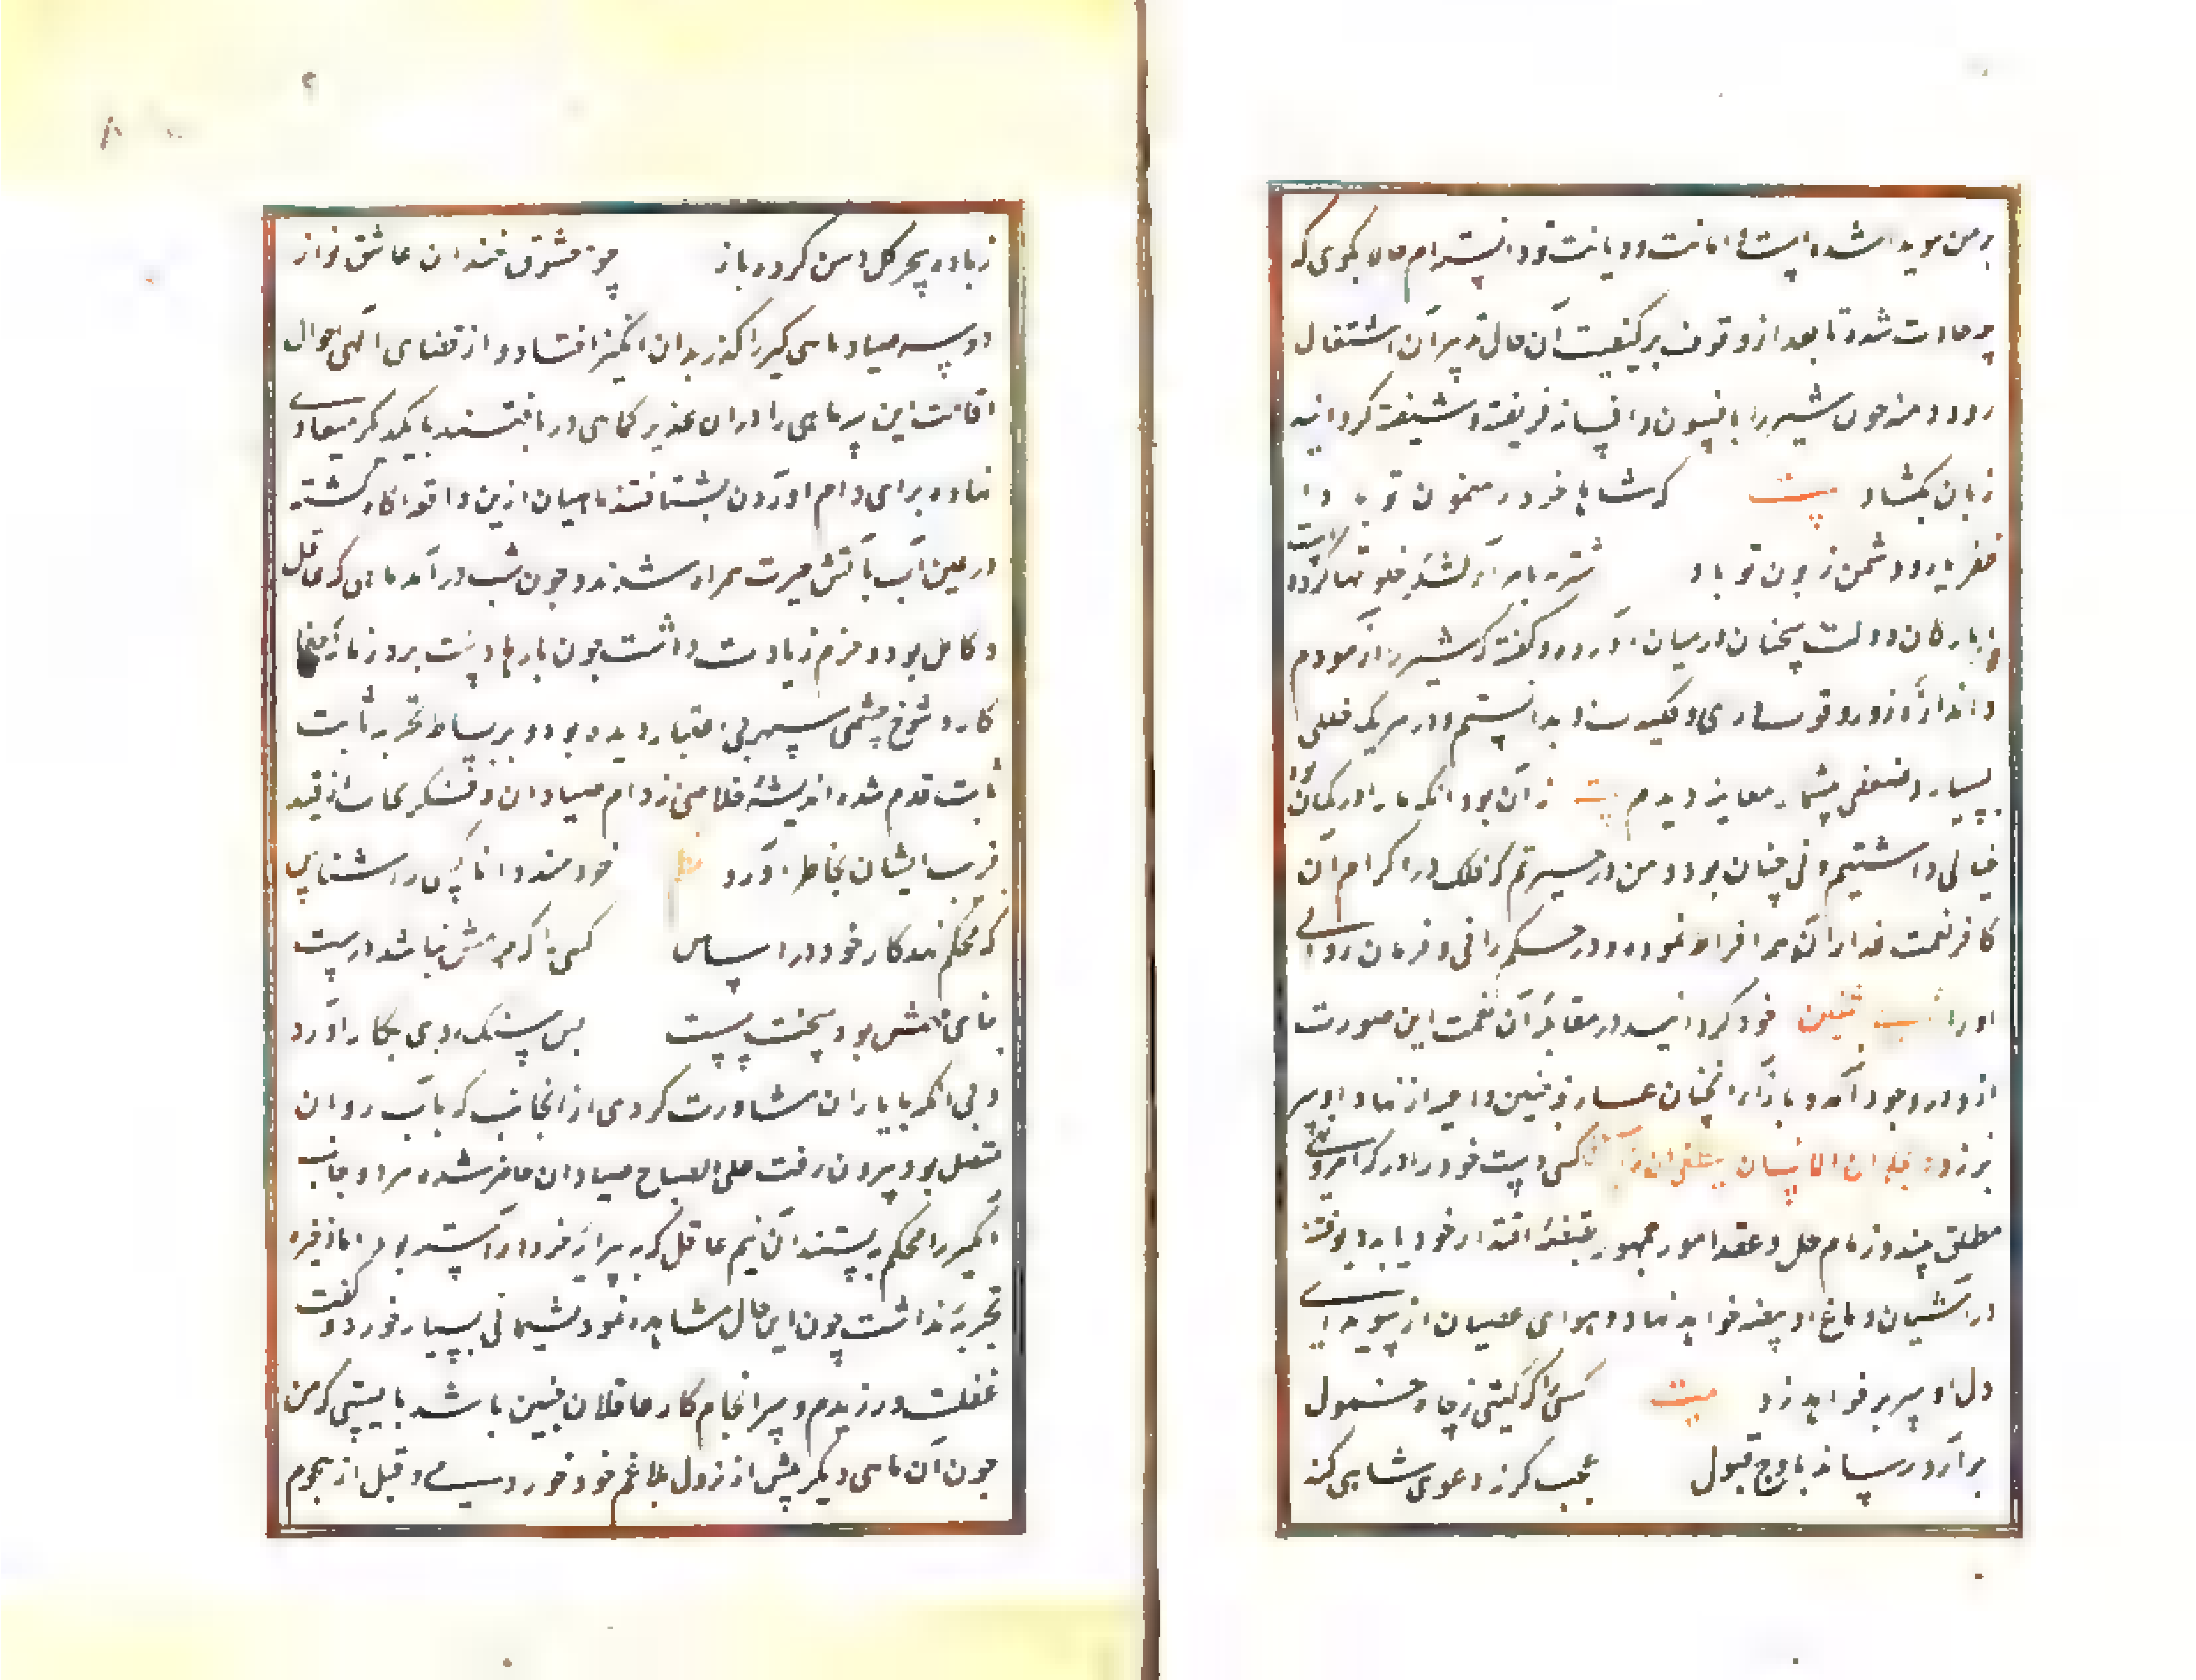 بر من هویدا شده است و امانت و دیانت تو دانسته‌ام حالا بگوی که
چه حادث شده تا بعد از وقوف بر کیفیت آن حال تدبیر آن اشتغال
رود دمنه چون شیر را بافسون و افسانه فریفته و شیفته گردانید
زبان بگشاد بیت که شاها خرد رهنمون تو باد
ظفر یار و دشمن زبون تو باد شتربه با امرای لشکر خلوتها کرده است
و با ارکان دولت سخنان در میان آورده و گفته که شیر را آزمودم
و اندازه زور و قوت و رای و مکیدت او بدانستم و در هر یک خللی
بسیار و ضعفی بیشمار معاینه دیدم بیت نه آن بود آنکه ما را در گمان بود
خیالی داشتیم و نی چنان بود و من در حیرتم که ملک در اکرام آن
کافر نعمت غدار آن همه افراط نموده و در حکم رانی و فرمان روائی
او را ثانی اثنین خود گردانید در مقابله آن نعمت این صورت
ازو در وجود آمد و بازاء آنچنان
بر زد ان الانسان لیطغی ان رآه کسی دست خود را در کار امر و نهی
مطلق بیند و زمام حل و عقد امور جمهور بقبضه اقتدار خود یابد دیو فتنه
در آشیان دماغ او بیضه خواهد نهاد و هوای عصیان از سویدای
دل او سر بر خواهد زد بیت کسی را که گیتی ز چاه خمول
برآرد رساند باوج قبول عجب گر نه دعوی شاهی کند
زباد سحر گل دهن کرده باز چو معشوق خندان عاشق نواز
دو سه صیاد ماهی گیر را گذر بدان آبگیر افتاد و از قضای الهی احوال
اقامت این سه ماهی را در آن غدیر کماهی دریافتند با یکدیگر میعادی
نهاده برای دام آوردن بشتافتند ماهیان ازین واقعه آگاه گشته
در عین آب با آتش حیرت همراه شدند و چون شب درآمد ماهی که عقل
کامل بود و حزم زیادت داشت چون بارها دستبرد زمانه جفا
کار و شوخ چشمی سپهر بی اعتبار دیده بود و بر بساط تجربه ثابت
ثابت قدم شده اندیشه خلاصی از دام صیادان و فکر نجات از قید
فریب ایشان بخاطر آورد نظم خردمند دانا کسی را شناس
که محکم نهد کار خود را اساس کسی را که عزمش نباشد درست
بنای امورش بود سخت سست پس سبک روی بکار آورد
و بی آنکه با یاران مشاورت کردی از آنجانب که بآب روان
متصل بود بیرون رفت علی الصباح صیادان حاضر شده هر دو جانب
آبگیر را محکم ببستند آن نیم عاقل که به پیرایه خرد آراسته بود اما ذخیره
تجربه نداشت چون این حال مشاهده نمود پشیمانی بسیار خورد و گفت
غفلت ورزیدم و سرانجام کار غافلان چنین باشد بایستی که من
چون آن ماهی دیگر پیش از نزول بلا غم خود خوردمی و قبل از هجوم